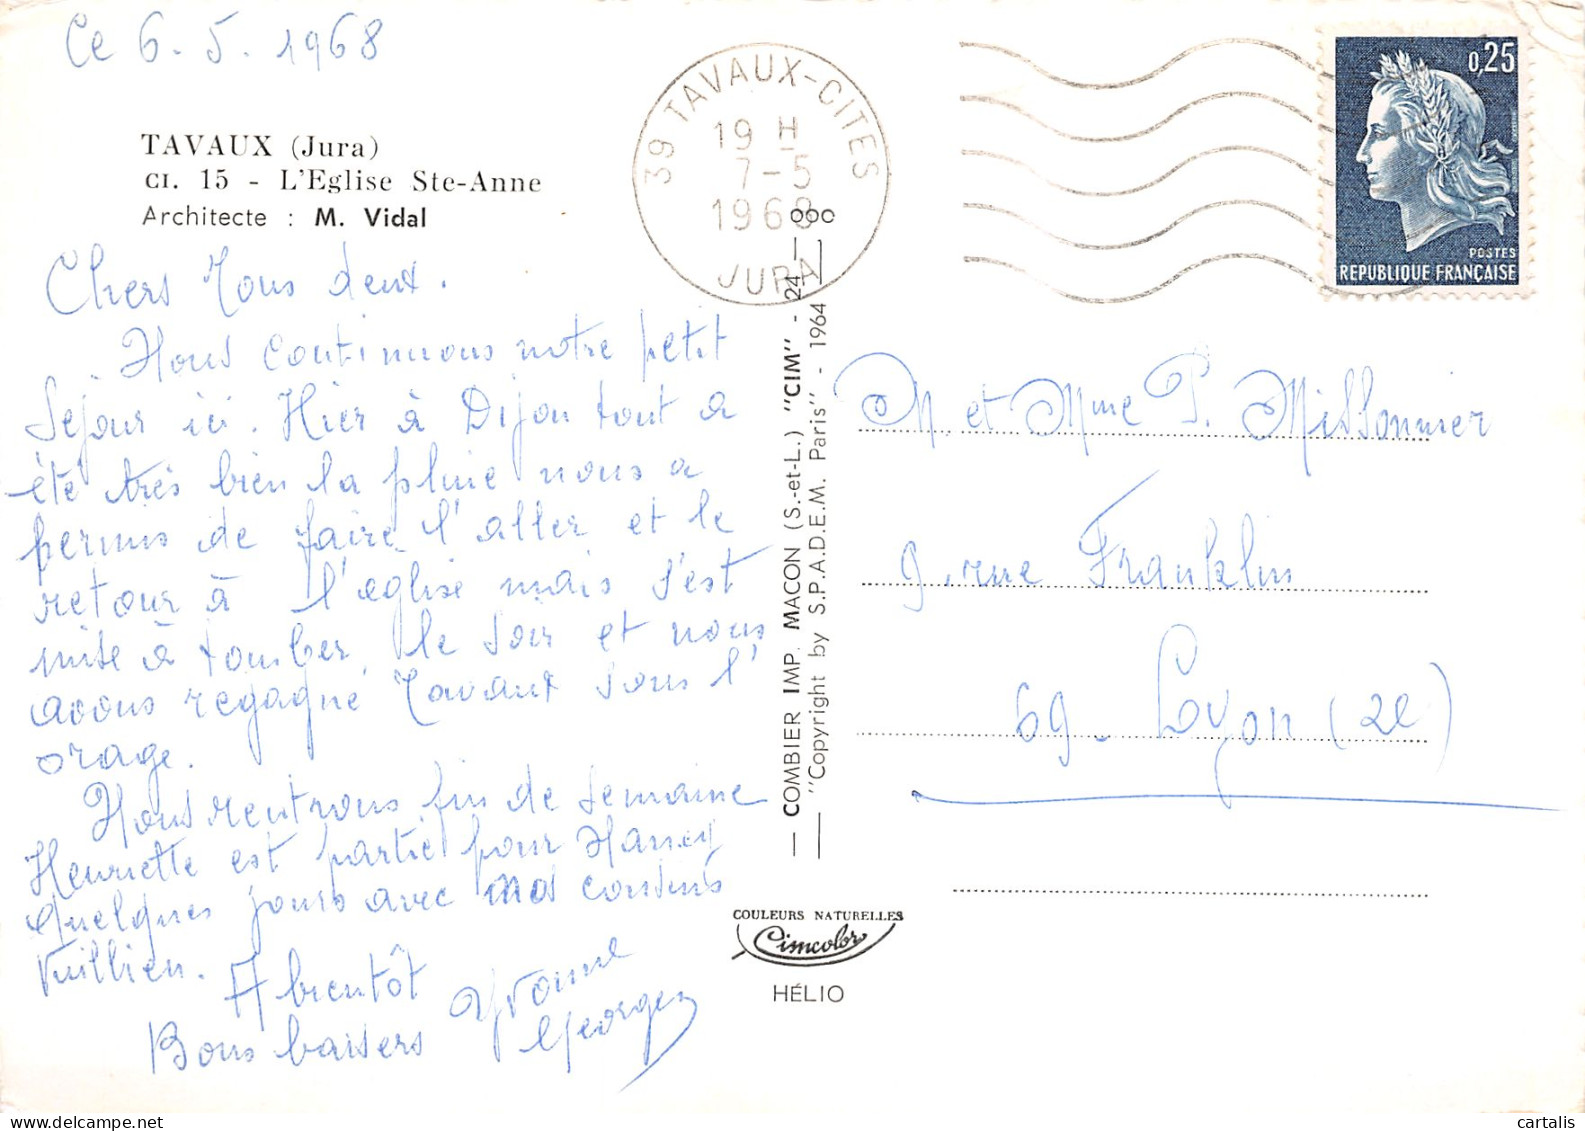 Ce 6.5.1968
TAVAUX (Jura)
CI. 15 - L'Eglise Ste-Anne
Architecte : M. Vidal
Chers Tous deux.
Nous continuons notre petit
Séjour ici. Hier à Dijon tout a
été très bien la pluie nous a
permis de faire l'aller et le
retour à l'église mais s'est
mise à tomber le soir et nous
avons regagné Tavaux sous l'
orage.
Nous rentrons fin de semaine
Henriette est partie pour Nancy
quelques jours avec nos cousins
Vuillien.
A bientôt
Bons baisers
Yvonne
Georges
39 TAVAUX-CITES
19 H
7-5
1968
JURA
0,25
POSTES
REPUBLIQUE FRANÇAISE
COMBIER IMP. MACON (S.-et-L.) "CIM" - 24
"Copyright by S.P.A.D.E.M. Paris" - 1964
M. et Mme P. Missonnier
9. rue Franklin
69 - Lyon (2e)
COULEURS NATURELLES
Cimcolor
HÉLIO
cartalis